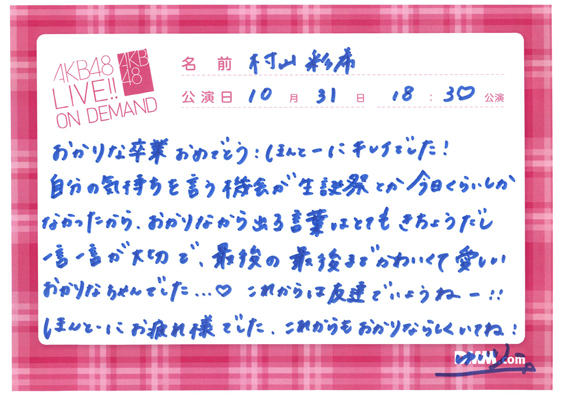 AKB48
LIVE!!
ON DEMAND
AKB
48
名前 村山彩希
公演日 10月 31日 18:30公演
おかりな卒業おめでとう:ほんとーにキレイでした!
自分の気持ちを言う機会が生誕祭とか今日くらいしか
なかったから、おかりなから出る言葉はとてもきちょうだし
一言一言が大切で、最後の最後までかわいくて愛しい
おかりなちゃんでした...♡ これからは友達でいようねー!!
ほんとーにお疲れ様でした、これからもおかりならしくいてね!
.com